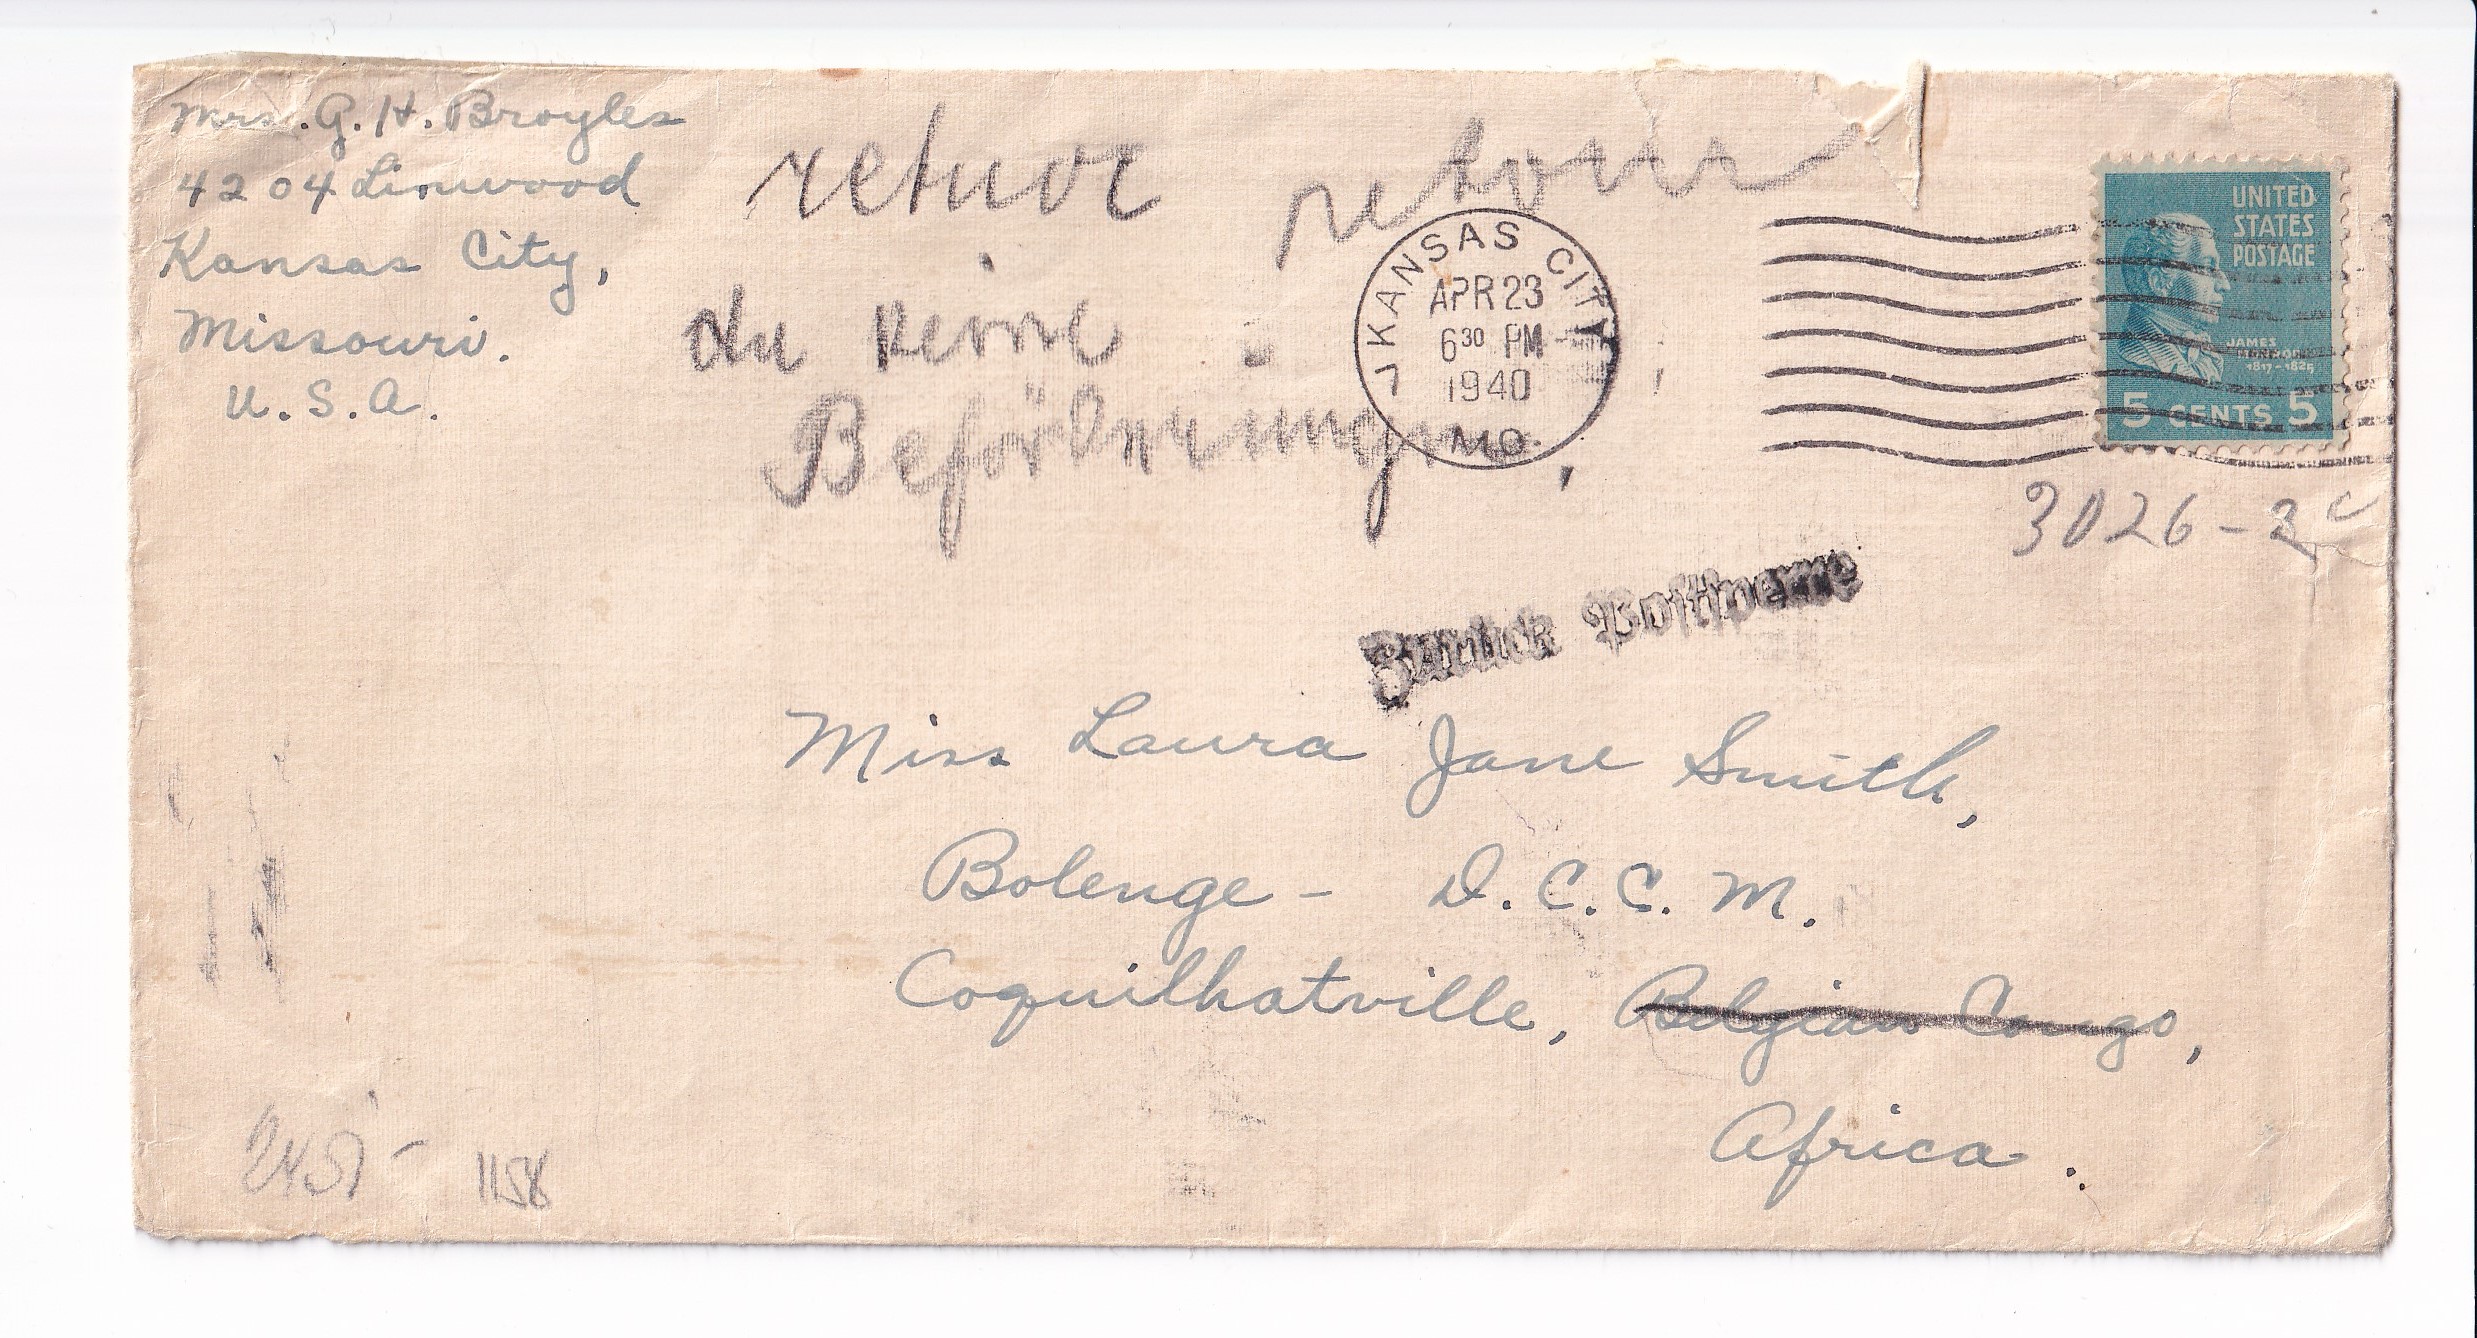 Mrs. G. H. Broyles
4204 Linwood
Kansas City,
Missouri.
U.S.A.
retuor retour
da keine
Beförderung
KANSAS CITY
APR 23
6 30 PM
1940
MO.
UNITED
STATES
POSTAGE
JAMES
MONROE
1817-1825
5 CENTS 5
3026-2c
Zurück Postsperre
Miss Laura Jane Smith,
Bolenge - D.C.C.M.
Coquilhatville, Belgian Congo,
Africa.
1158